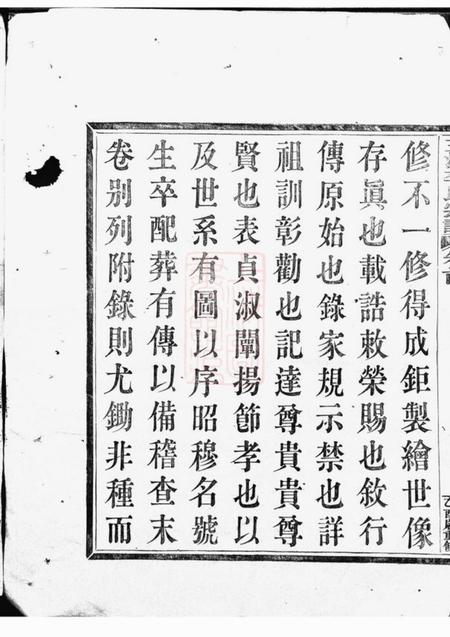 修不一修得成鉅製繪世像
存眞也載誥敕榮賜也敘行
傳原始也錄家規示禁也詳
祖訓彰勸也記達尊貴貴尊
賢也表貞淑闡揚節孝也以
及世系有圖以序昭穆名號
生卒配葬有傳以備稽查末
卷别列附錄則尤鋤非種而